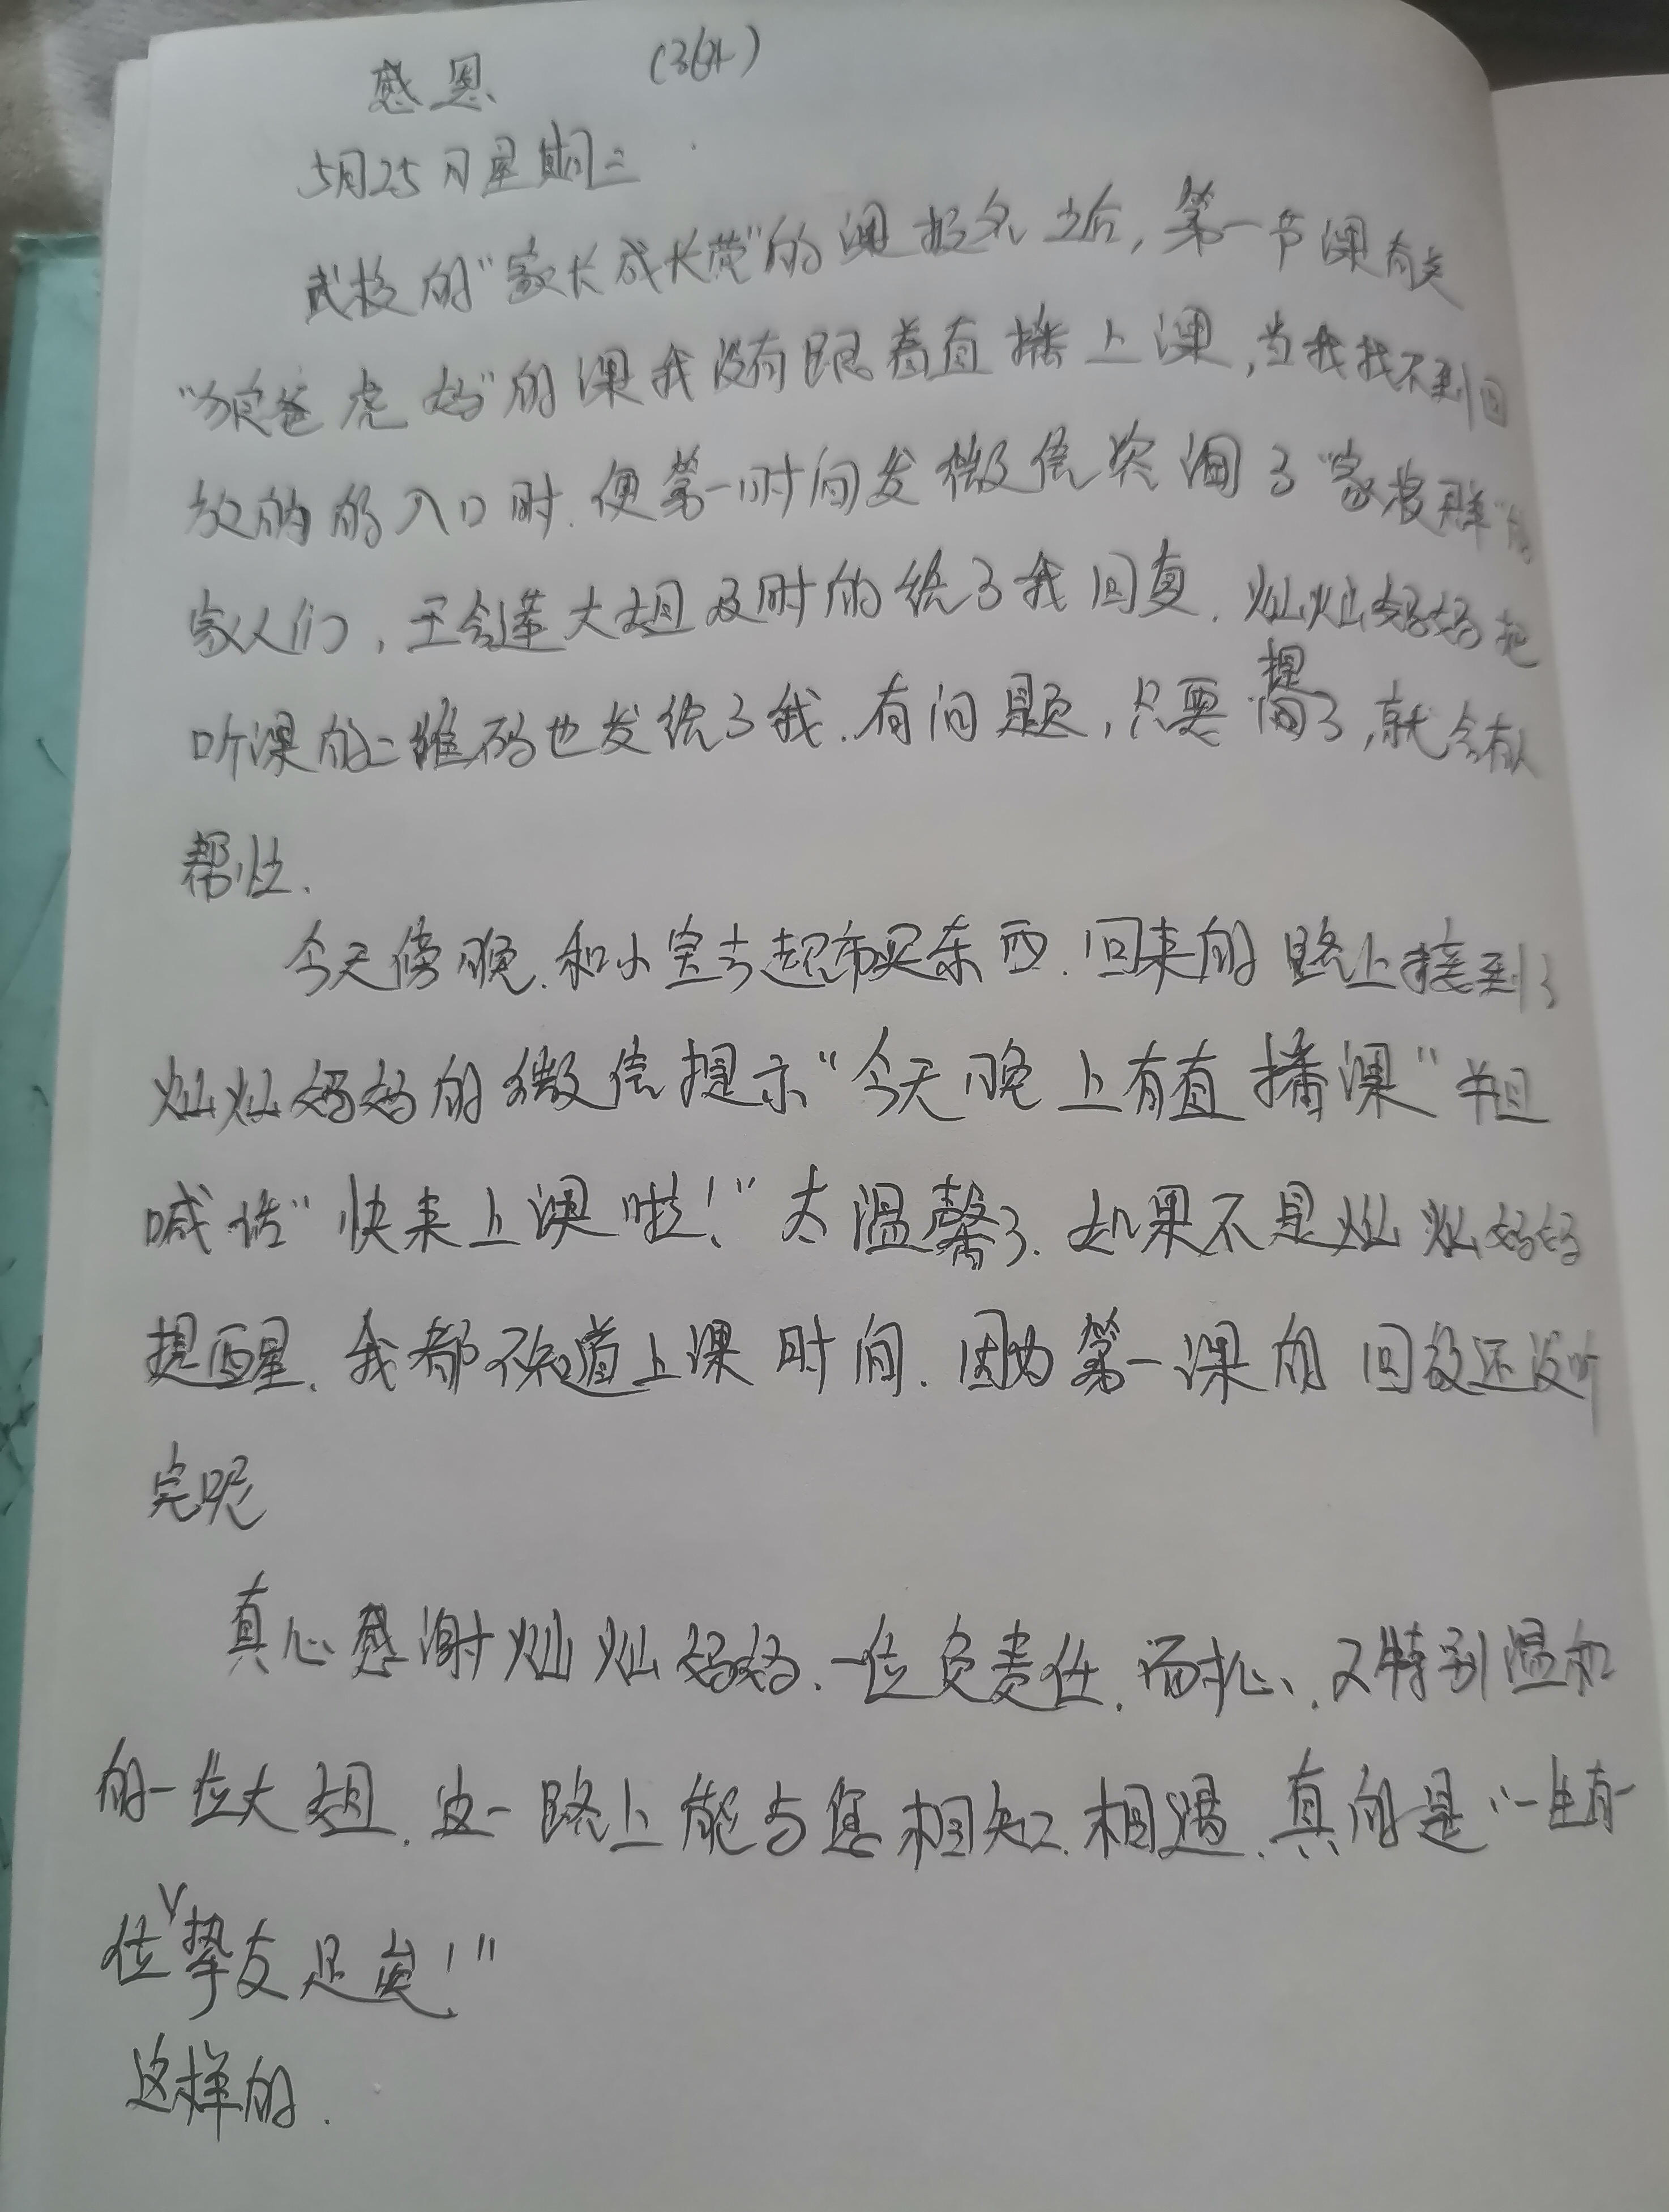 感恩 (364)
5月25日星期三
武校的"家长成长营"的课报名之后,第一节课有关
"狼爸虎妈"的课我没有跟着直播上课,当我找不到回
放的的入口时.便第一时间发微信资询了"家校群"的
家人们,王会莲大姐及时的给了我回复.灿灿妈妈把
听课的二维码也发给了我.有问题,只要提了,就会有人
帮忙.
今天傍晚.和小宝去超市买东西.回来的路上接到了
灿灿妈妈的微信提示"今天晚上有直播课"并且
喊话"快来上课啦!"太温馨了.如果不是灿灿妈妈
提醒.我都不知道上课时间.因为第一课的回放还没听
完呢
真心感谢灿灿妈妈.一位负责任.而扎心.又特别温和
的一位大姐.这一路上能与您相知.相遇.真的是"一生有一
位挚友足矣!"
这样的.